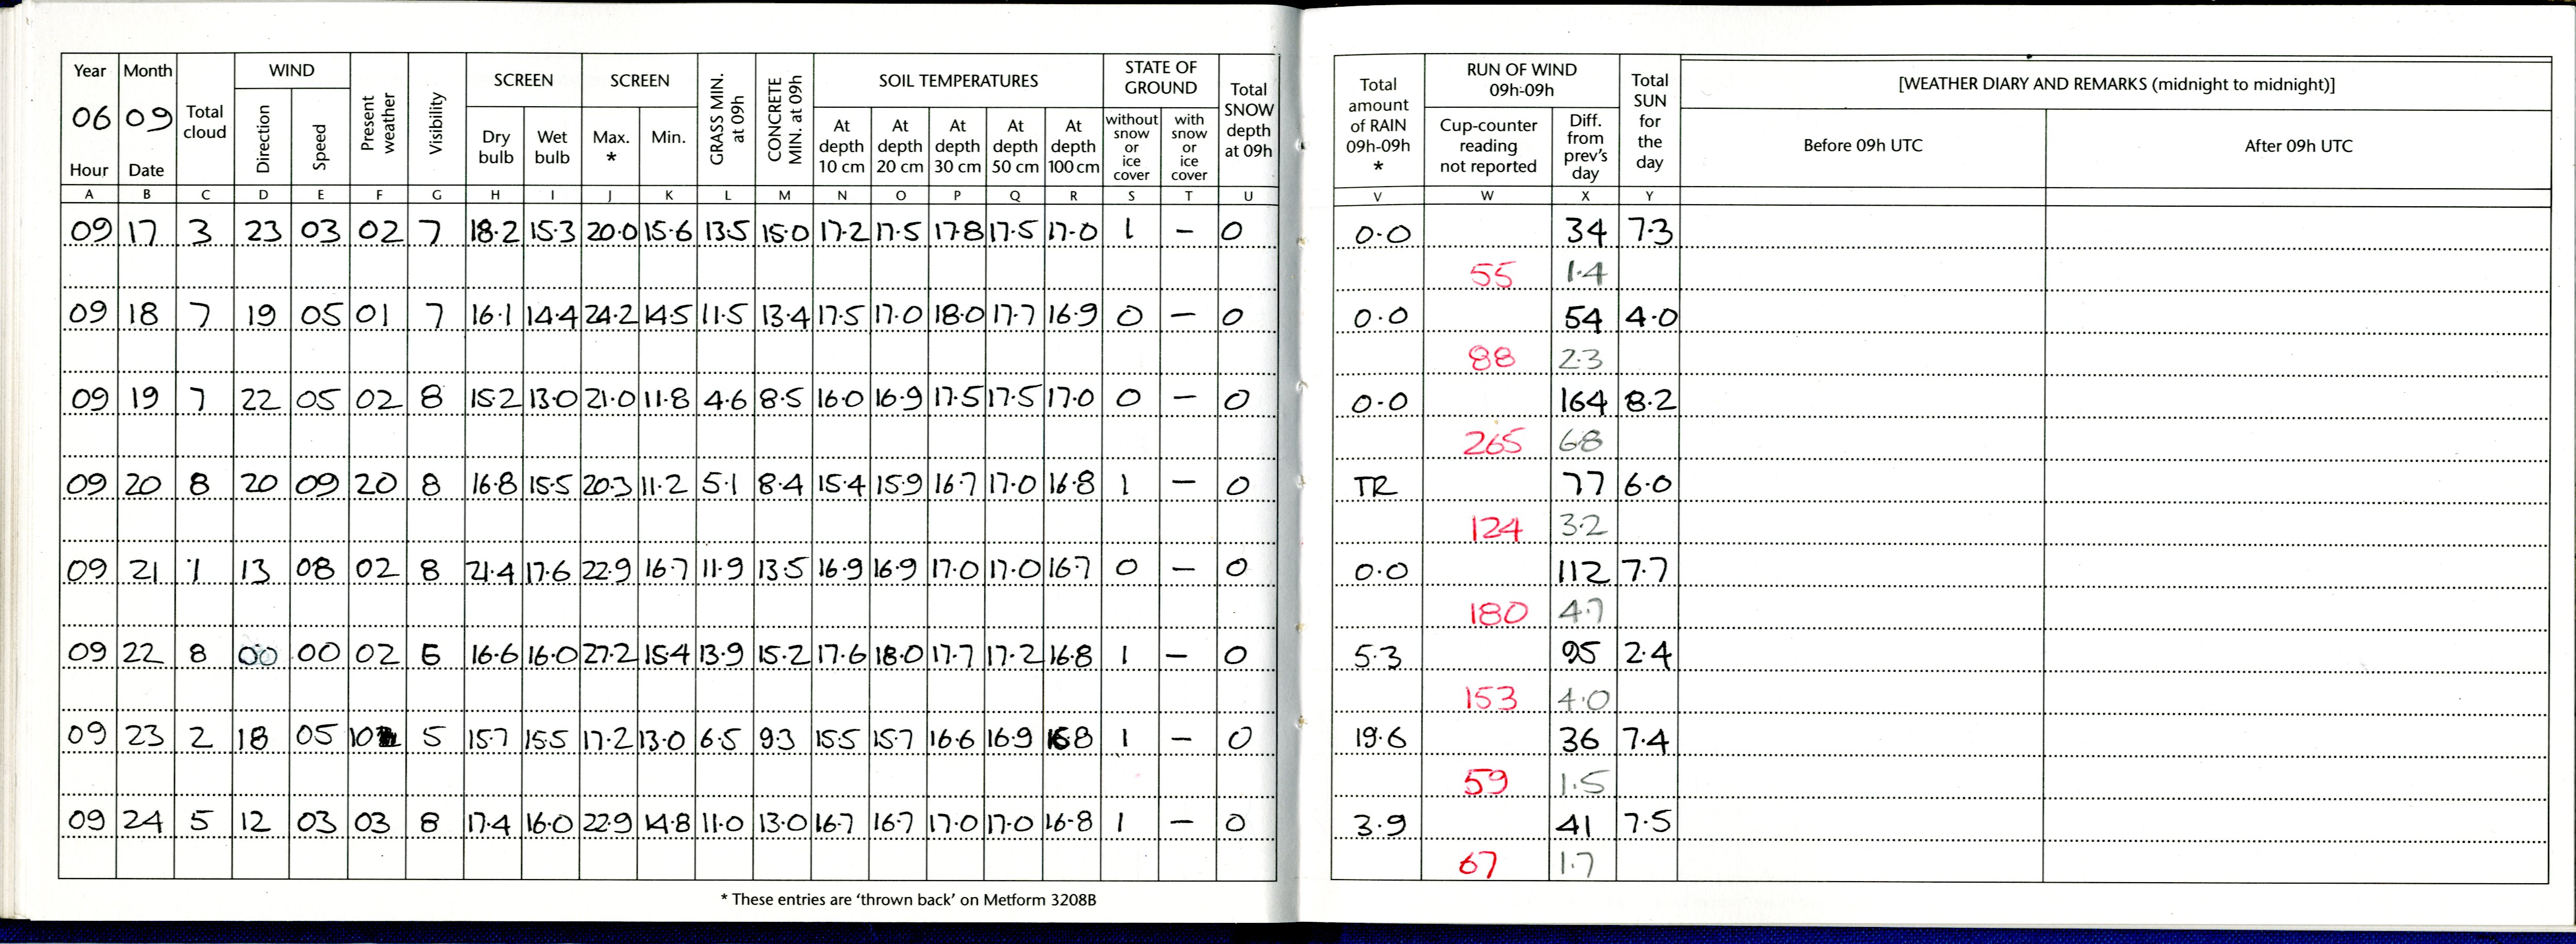 Year Month Total cloud WIND Present weather Visibility SCREEN SCREEN GRASS MIN. at 09h CONCRETE MIN. at 09h SOIL TEMPERATURES STATE OF GROUND Total SNOW depth at 09h Total amount of RAIN 09h-09h * RUN OF WIND 09h-09h Total SUN for the day [WEATHER DIARY AND REMARKS (midnight to midnight)]
06 09 Direction Speed Dry bulb Wet bulb Max. * Min. At depth 10 cm At depth 20 cm At depth 30 cm At depth 50 cm At depth 100 cm without snow or ice cover with snow or ice cover Cup-counter reading not reported Diff. from prev's day Before 09h UTC After 09h UTC
Hour Date
A B C D E F G H I J K L M N O P Q R S T U V W X Y
09 17 3 23 03 02 7 18.2 15.3 20.0 15.6 13.5 15.0 17.2 17.5 17.8 17.5 17.0 1 – 0 0.0 34 7.3
55 1.4
09 18 7 19 05 01 7 16.1 14.4 24.2 14.5 11.5 13.4 17.5 17.0 18.0 17.7 16.9 0 – 0 0.0 54 4.0
88 2.3
09 19 7 22 05 02 8 15.2 13.0 21.0 11.8 4.6 8.5 16.0 16.9 17.5 17.5 17.0 0 – 0 0.0 164 8.2
265 6.8
09 20 8 20 09 20 8 16.8 15.5 20.3 11.2 5.1 8.4 15.4 15.9 16.7 17.0 16.8 1 – 0 TR 77 6.0
124 3.2
09 21 1 13 08 02 8 21.4 17.6 22.9 16.7 11.9 13.5 16.9 16.9 17.0 17.0 16.7 0 – 0 0.0 112 7.7
180 4.7
09 22 8 00 00 02 6 16.6 16.0 27.2 15.4 13.9 15.2 17.6 18.0 17.7 17.2 16.8 1 – 0 5.3 95 2.4
153 4.0
09 23 2 18 05 10 5 15.7 15.5 17.2 13.0 6.5 9.3 15.5 15.7 16.6 16.9 16.8 1 – 0 19.6 36 7.4
59 1.5
09 24 5 12 03 03 8 17.4 16.0 22.9 14.8 11.0 13.0 16.7 16.7 17.0 17.0 16.8 1 – 0 3.9 41 7.5
67 1.7
* These entries are 'thrown back' on Metform 3208B